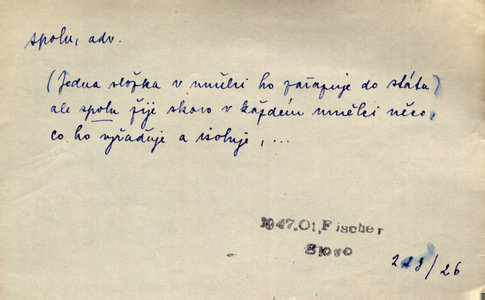 spolu, adv.
(Jedna složka v umělci ho zařazuje do státu)
ale spolu žije skoro v každém umělci něco,
co ho vyřaďuje a isoluje, ...
1947.01, Fischer
Slovo
223/26